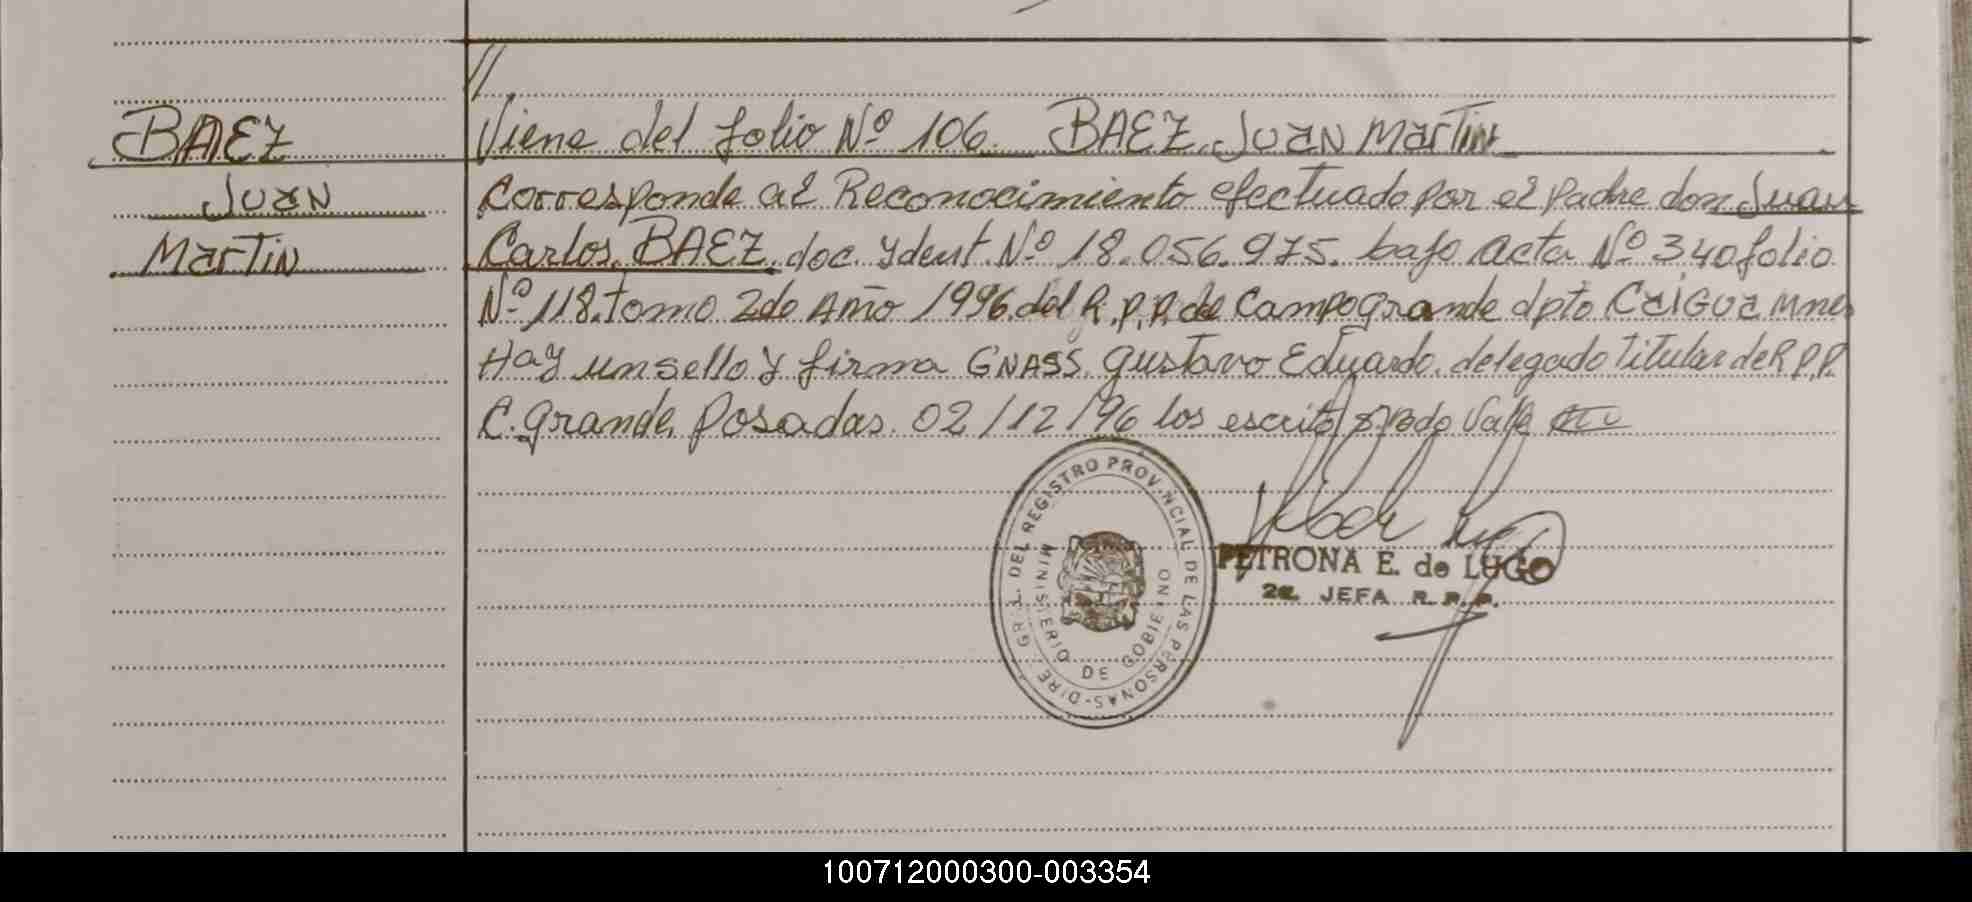 //
BAEZ
Juan
Martin
Viene del folio Nº 106. BAEZ, Juan Martin
Corresponde al Reconocimiento efectuado por el padre don Juan
Carlos BAEZ, doc. Ydent. Nº 18.056.975. bajo acta Nº 340 folio
Nº 118. tomo 2do Año 1996. del R.P.P. de Campo grande dpto CaiGua Mnes
Hay un sello y firma GNASS Gustavo Eduardo. delegado titular de R.P.P.
C. grande, Posadas. 02/12/96 los escrito s/ Rdo Vale
DIRE. GRAL. DEL REGISTRO PROVINCIAL DE LAS PERSONAS-
MINISTERIO DE GOBIERNO
PETRONA E. de LUGO
2a. JEFA R.P.P.
100712000300-003354